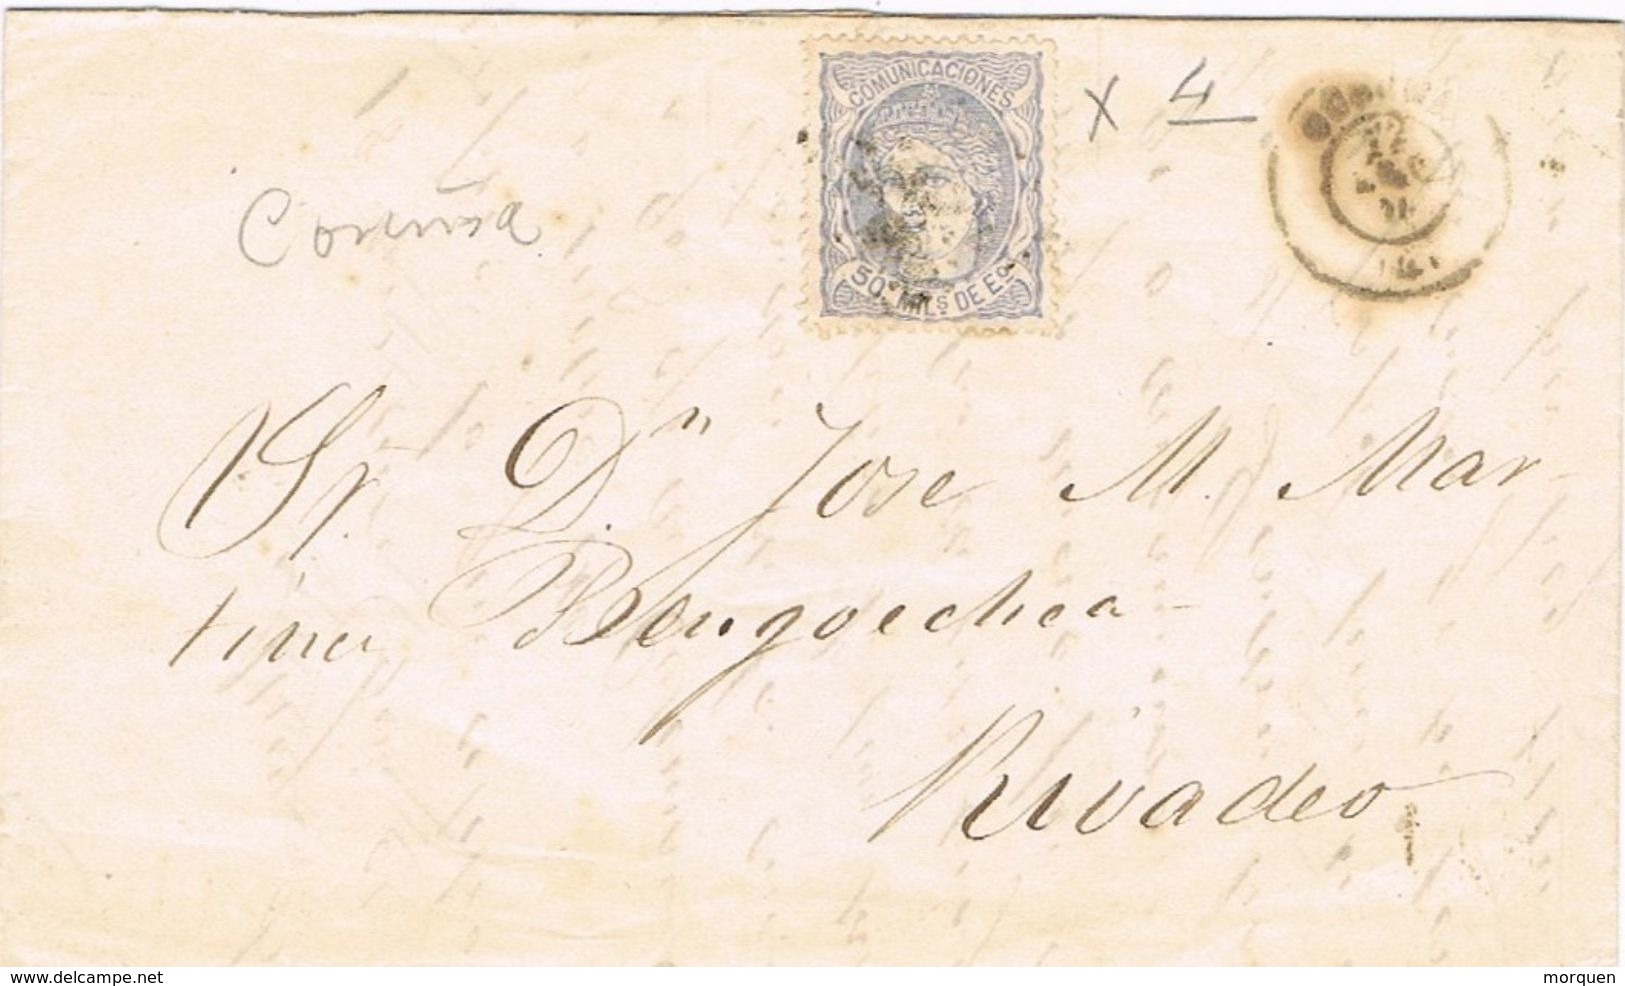 COMUNICACIONES
x 4
Coruña
50 MILS DE Eo
Sr. Dn Jose M. Mar-
tinez Bengoechea
Rivadeo
www.delcampe.net
morquen